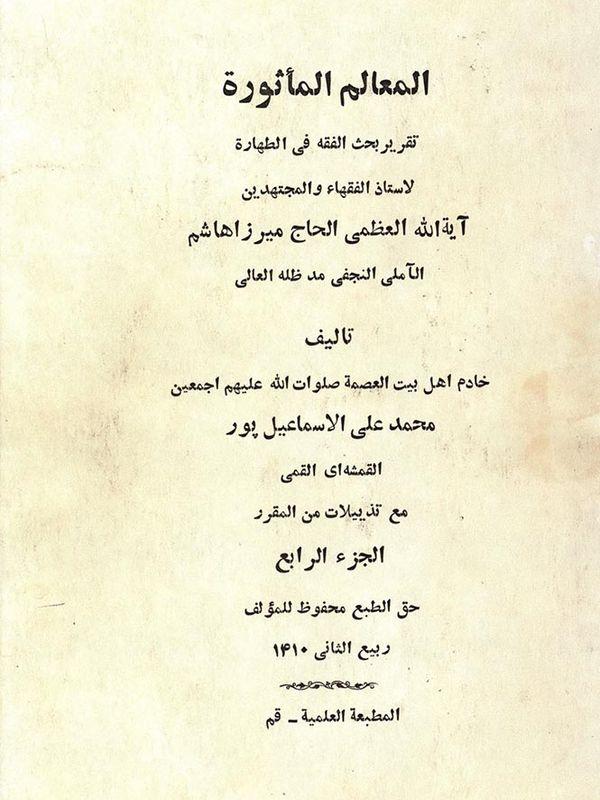 المعالم المأثورة
تقرير بحث الفقه فى الطهارة
لاستاذ الفقهاء والمجتهدين
آيةالله العظمى الحاج ميرزاهاشم
الآملى النجفى مد ظله العالى
تاليف
خادم اهل بيت العصمة صلوات الله عليهم اجمعين
محمد على الاسماعيل پور
القمشه‌اى القمى
مع تذييلات من المقرر
الجزء الرابع
حق الطبع محفوظ للمؤلف
ربيع الثانى ۱۴۱۰
المطبعة العلمية ـ قم